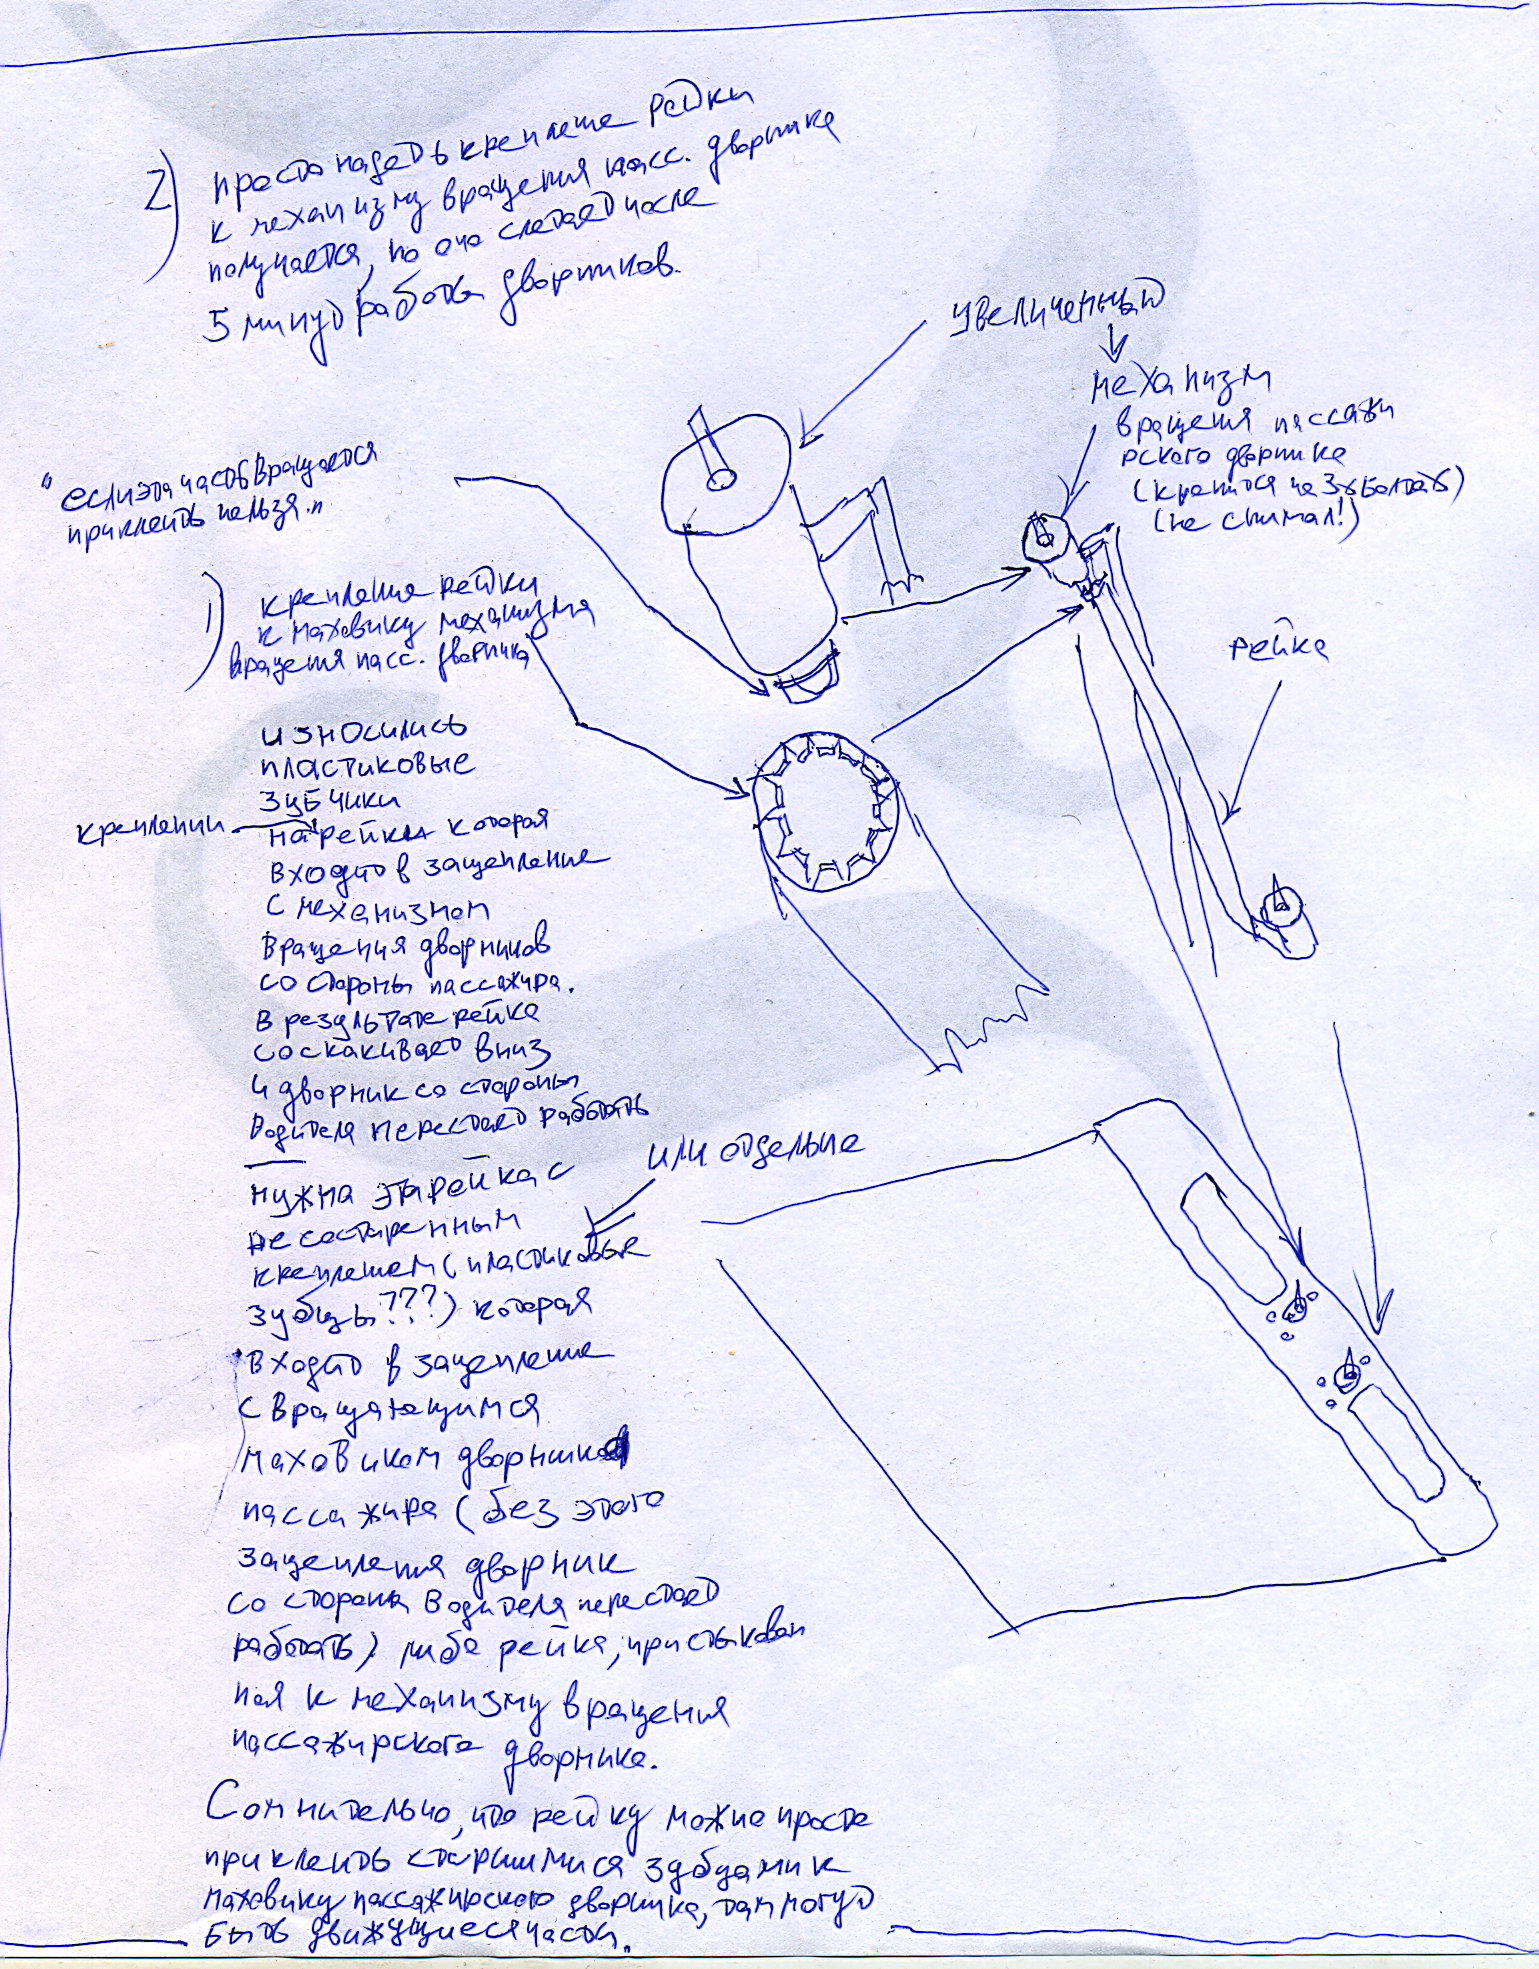 2) просто надеть крепление рейки
к механизму вращения пасс. дворника
получается, но оно слетает после
5 минут работы дворников.
увеличенный
механизм
вращения пассажи
рского дворника
(крепится на 3х болтах)
(не снимал!)
"если эта часть вращается
приклеить нельзя."
1) крепления рейки
к маховику механизма
вращения пасс. дворника
рейка
износились
пластиковые
зубчики
креплении
на рейки которая
входит в зацепление
с механизмом
вращения дворников
со стороны пассажира.
В результате рейка
соскакивает вниз
и дворник со стороны
водителя перестает работать
или отдельно
нужна эта рейка с
не состаренным
креплением (пластиковые
зубцы???) которая
входит в зацепление
с вращающимся
маховиком дворника
пассажира (без этого
зацепления дворник
со стороны водителя перестает
работать) либо рейка, пристыкован
ная к механизму вращения
пассажирского дворника.
Сомнительно, что рейку можно просто
приклеить стёршимися зубцами к
маховику пассажирского дворника, там могут
быть движущиеся части.